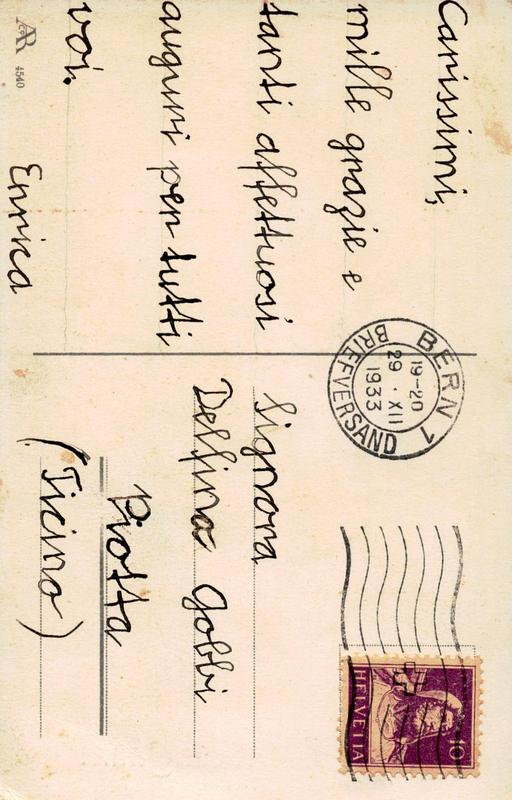 Carissimi,
mille grazie e
tanti affettuosi
auguri per tutti
voi.
Enrica
AR 4540
BERN 1
19-20
29. XII
1933
BRIEFVERSAND
HELVETIA
10
Signora
Delfina Gobbi
Piotta
(Ticino)